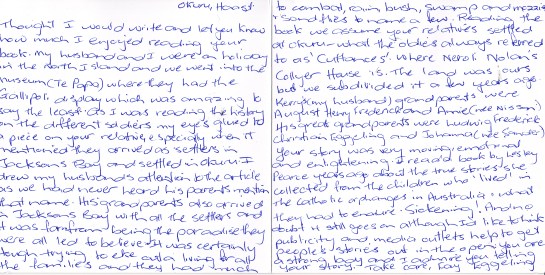 Okuru, Haast.
Thought I would write and let you know
how much I enjoyed reading your
book. My husband and I were on holiday
in the north Island and we went into the
museum (Te Papa) where they had the
Gallipoli display which was amazing to
say the least. As I was reading the history
on the different soldiers my eyes glued to
a piece on your relative, specially when it
mentioned they arrived as settlers in
Jacksons Bay and settled in Okuru. I
drew my husband's attention to the article
as we had never heard his parents mention
that name. His grandparents also arrived
in Jacksons Bay with all the settlers and
it was far from being the paradise they
were all led to believe. It was certainly
tough trying to eke out a living for all
the families and they had much
to combat, rain, bush, swamp and mozzies
& sandflies to name a few. Reading the
book we assume your relatives settled
at Okuru what the oldies always referred
to as 'Cuttances'. Where Nerol Nolan's
Collyer House is. The land was ours
but we subdivided it a few years ago.
Kerry's (my husband) grandparents were
August Henry Frederick and Annie (nee Nisson)
His great grandparents were Ludwig Frederick
Christian Eggeling and Johanna (nee Sander)
Your story was very moving, emotional
and enlightening. I read a book by Lesley
Pearse years ago about the true stories she
collected from the children who 'lived' in
the Catholic orphanges in Australia & what
they had to endure. Sickening. And no
doubt it still goes on although I'd like to think
publicity and media outlets help to get
people's stories out in the open. you are
a strong boy and I admire you telling
your story. Take care Fay Eggeling